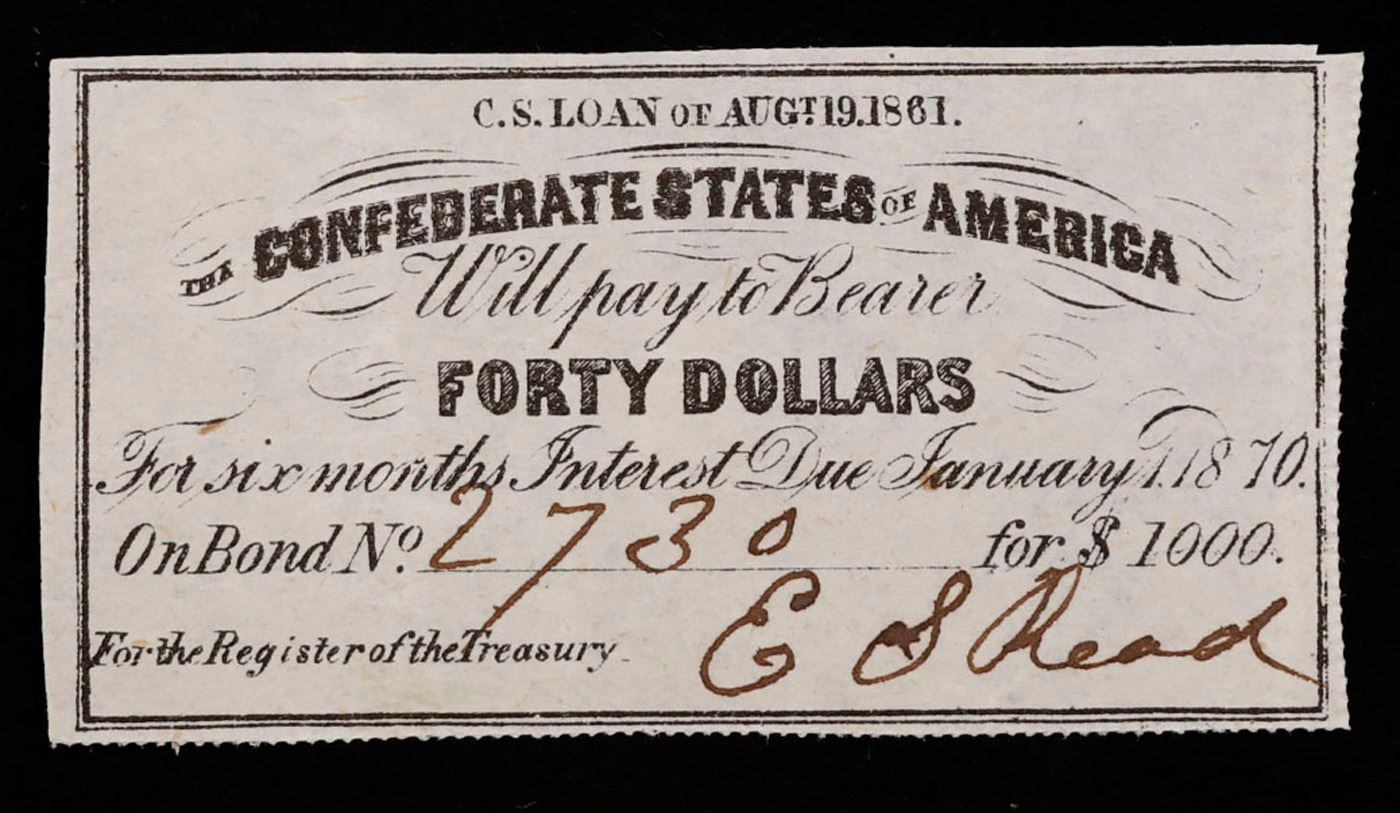 C. S. LOAN OF AUGT. 19. 1861.
THE CONFEDERATE STATES OF AMERICA
Will pay to Bearer
FORTY DOLLARS
For six months Interest Due January 1. 1870.
On Bond No. 2730 for $ 1000.
For the Register of the Treasury. E S Read